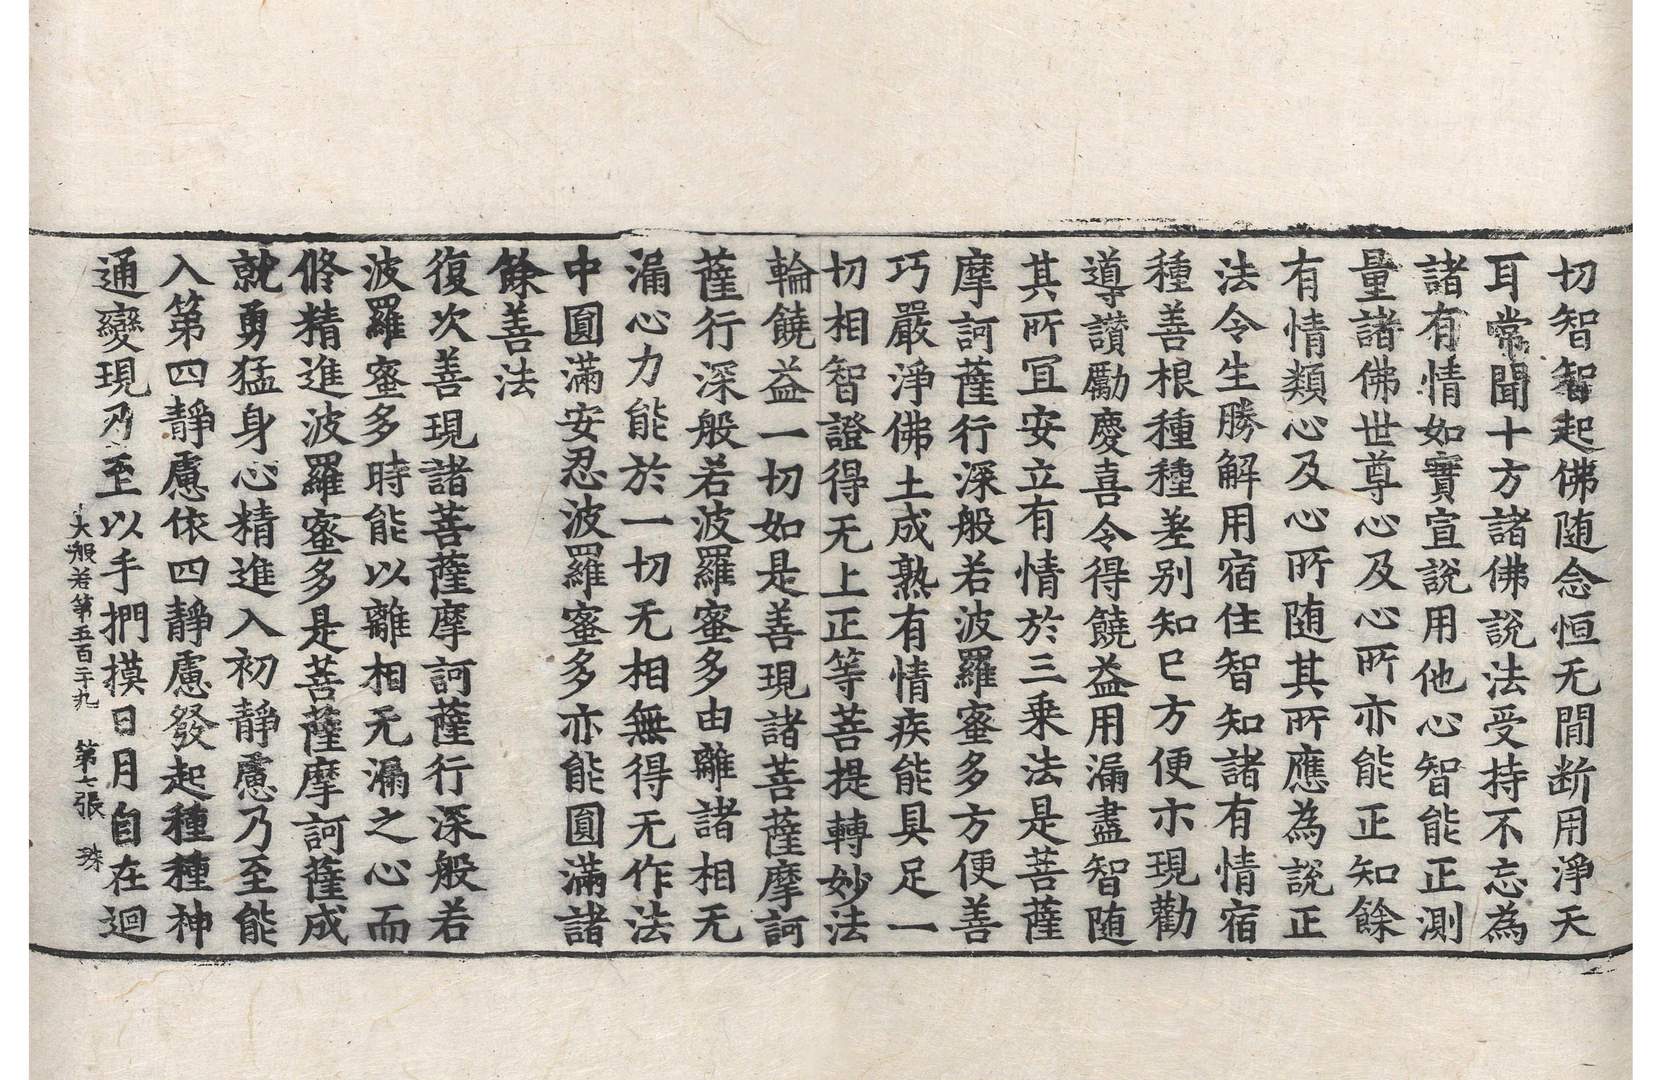 切智智起佛随念恒无閒断用淨天
耳常聞十方諸佛說法受持不忘為
諸有情如實宣說用他心智能正測
量諸佛世尊心及心所亦能正知餘
有情類心及心所随其所應為說正
法令生勝解用宿住智知諸有情宿
種善根種種差别知已方便示現勸
導讃勵慶喜令得饒益用漏盡智随
其所冝安立有情於三乘法是菩薩
摩訶薩行深般若波羅蜜多方便善
巧嚴淨佛土成熟有情疾能具足一
切相智證得无上正等菩提轉妙法
輪饒益一切如是善現諸菩薩摩訶
薩行深般若波羅蜜多由離諸相无
漏心力能於一切无相無得无作法
中圓滿安忍波羅蜜多亦能圓滿諸
餘善法
復次善現諸菩薩摩訶薩行深般若
波羅蜜多時能以離相无漏之心而
修精進波羅蜜多是菩薩摩訶薩成
就勇猛身心精進入初靜慮乃至能
入第四靜慮依四靜慮發起種種神
通變現乃至以手捫摸日月自在迴
大般若第五百二十九 第七張 珠